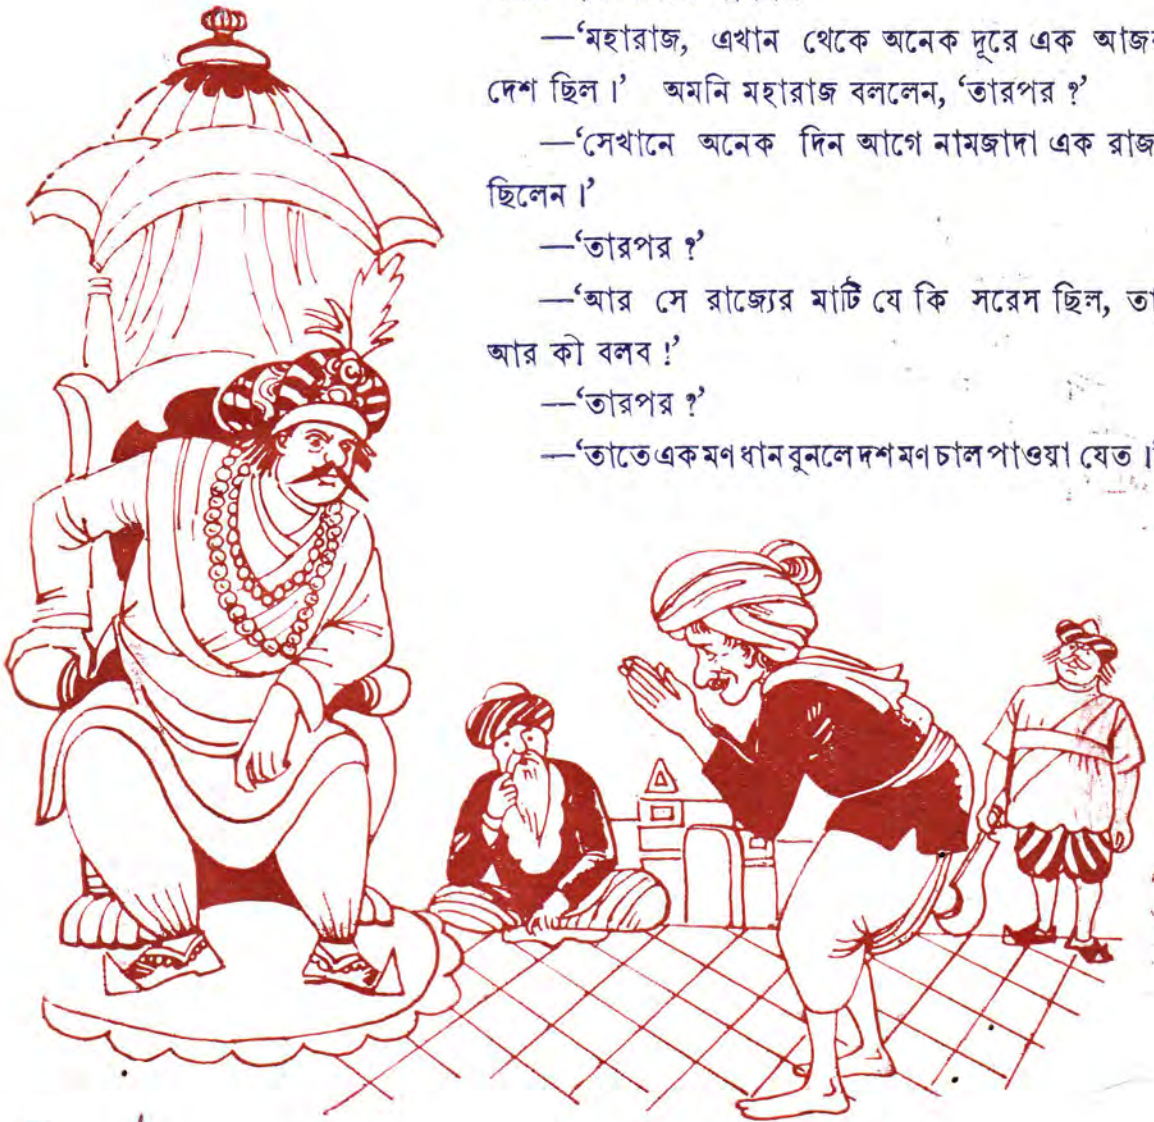 —‘মহারাজ, এখান থেকে অনেক দূরে এক
দেশ ছিল।’ অমনি মহারাজ বললেন, ‘তারপর ?’
—‘সেখানে অনেক দিন আগে নামজাদা এক রাজ
ছিলেন।’
—‘তারপর ?’
—‘আর সে রাজ্যের মাটি যে কি সরেস ছিল, তা
আর কী বলব !’
—‘তারপর ?’
—‘তাতে এক মণ ধান বুনলে দশ মণ চাল পাওয়া যেত।’